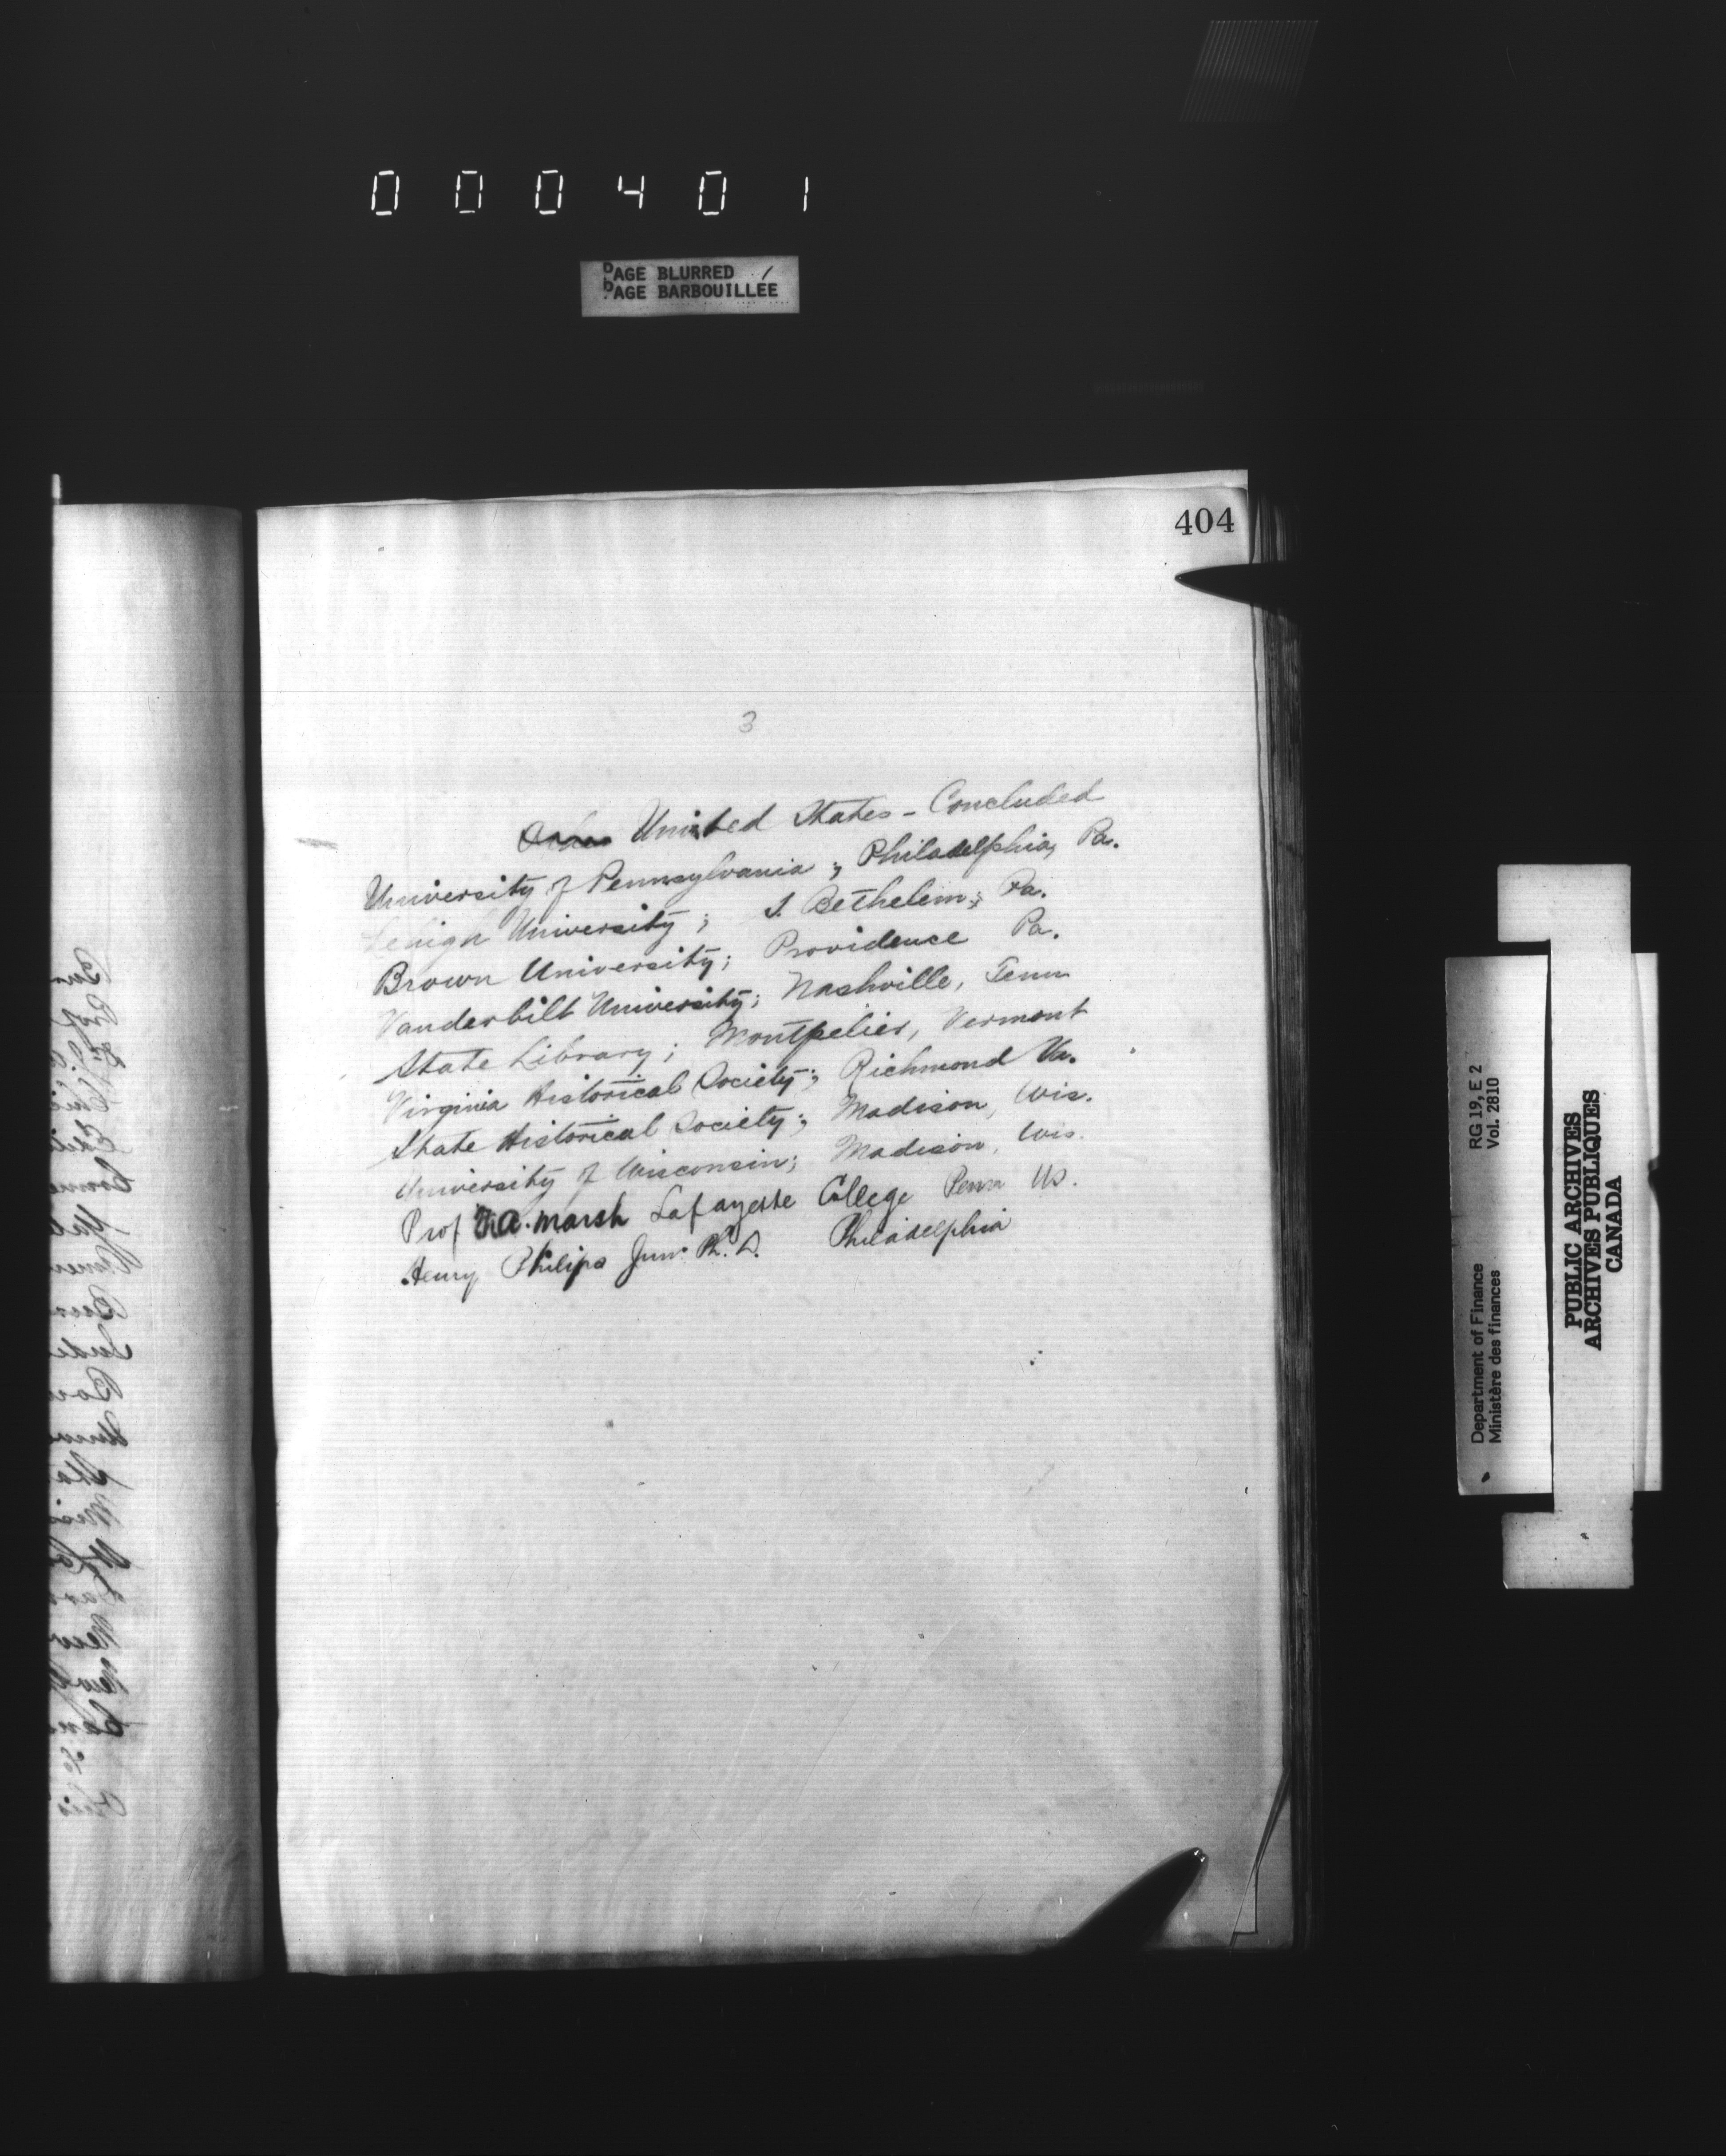 000401
PAGE BLURRED
PAGE BARBOUILLÉE
404
3
United States - Concluded
University of Pennsylvania; Philadelphia, Pa.
Lehigh University; S. Bethelem; Pa.
Brown University; Providence Pa.
Vanderbilt University; Nashville, Tenn
State Library; Montpelier, Vermont
Virginia Historical Society; Richmond Va.
State Historical Society; Madison, Wis.
University of Wisconsin; Madison, Wis.
Prof A. Marsh Lafayette College Penn US.
Henry Philips Junr. Ph. D. Philadelphia
RG 19, E 2
Vol. 2810
Department of Finance
Ministère des finances
PUBLIC ARCHIVES
ARCHIVES PUBLIQUES
CANADA